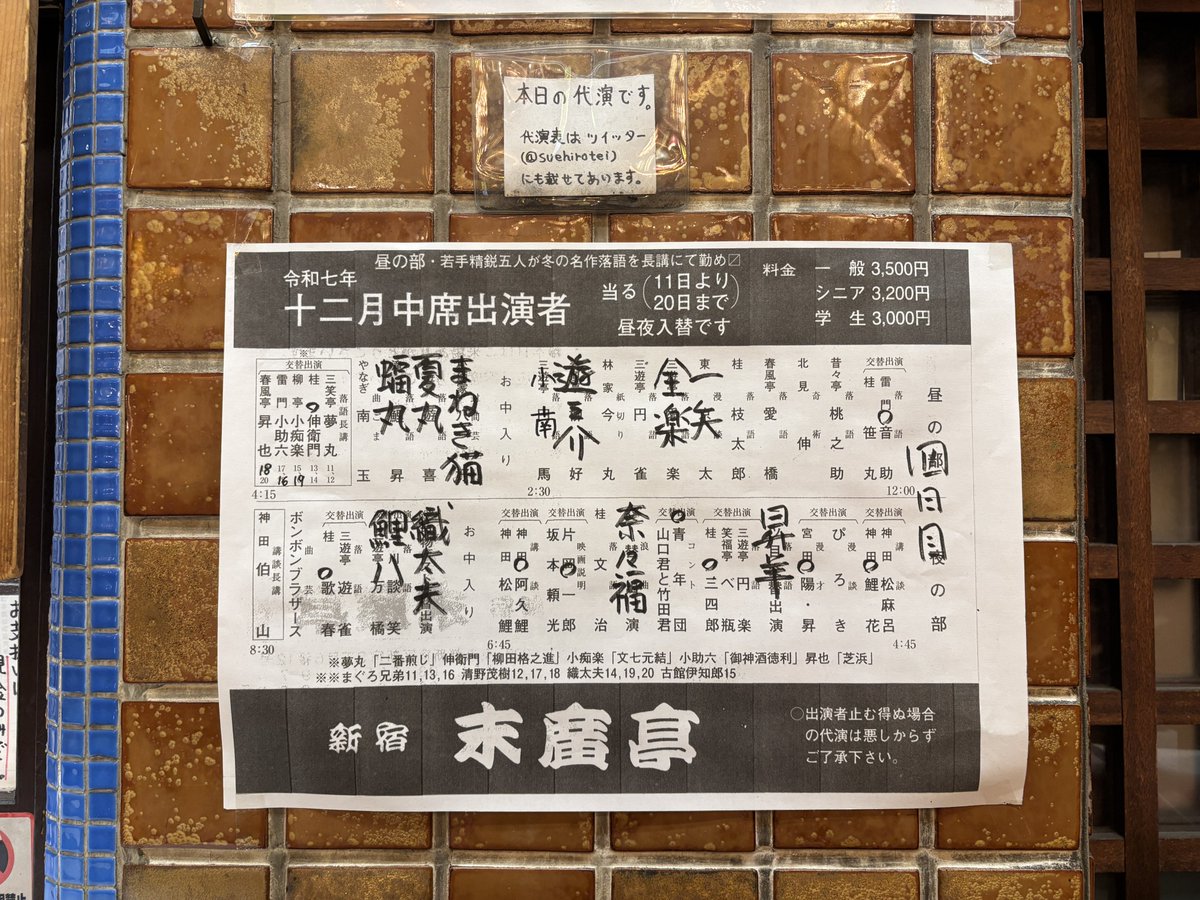 本日の代演です。
代演表はツイッター
(@suehirotei)
にも載せてあります。
昼の部・若手精鋭五人が冬の名作落語を長講にて勤め〼
令和七年
十二月中席出演者
当る(11日より
20日まで)
昼夜入替です
料金 一般 3,500円
シニア 3,200円
学生 3,000円
昼の部
交替出演
雷門音助
桂笹丸
12:00
昔々亭桃之助
北見伸
春風亭愛橋
桂枝太郎
一矢
金楽
三遊亭円雀
林家今丸
遊之介
南
2:30
お中入り
まねき猫
夏丸
蝠丸
やなぎ南玉
※
交替出演
落語長講
三笑亭夢丸 11 12
桂伸衛門 13 14
柳亭小痴楽 15 19
雷門小助六 17 16
春風亭昇也 18 20
4:15
夜の部
交替出演
神田松麻呂
神田鯉花
4:45
ぴろき
宮田陽・昇
昇羊
交替出演
三遊亭円楽
笑福亭べ瓶
桂三四郎
交替出演
コント
青年団
山口君と竹田君
奈々福
桂文治
交替出演
映画説明
片岡一郎
坂本頼光
交替出演
講談
神田阿久鯉
神田松鯉
6:45
お中入り
織太夫
鯉八
交替出演
三遊亭遊雀
桂歌春
曲芸
ボンボンブラザース
講談長講
神田伯山
8:30
※夢丸「二番煎じ」伸衛門「柳田格之進」小痴楽「文七元結」小助六「御神酒徳利」昇也「芝浜」
※※まぐろ兄弟11,13,16 清野茂樹12,17,18 織太夫14,19,20 古館伊知郎15
新宿 末廣亭
○出演者止む得ぬ場合
の代演は悪しからず
ご了承下さい。